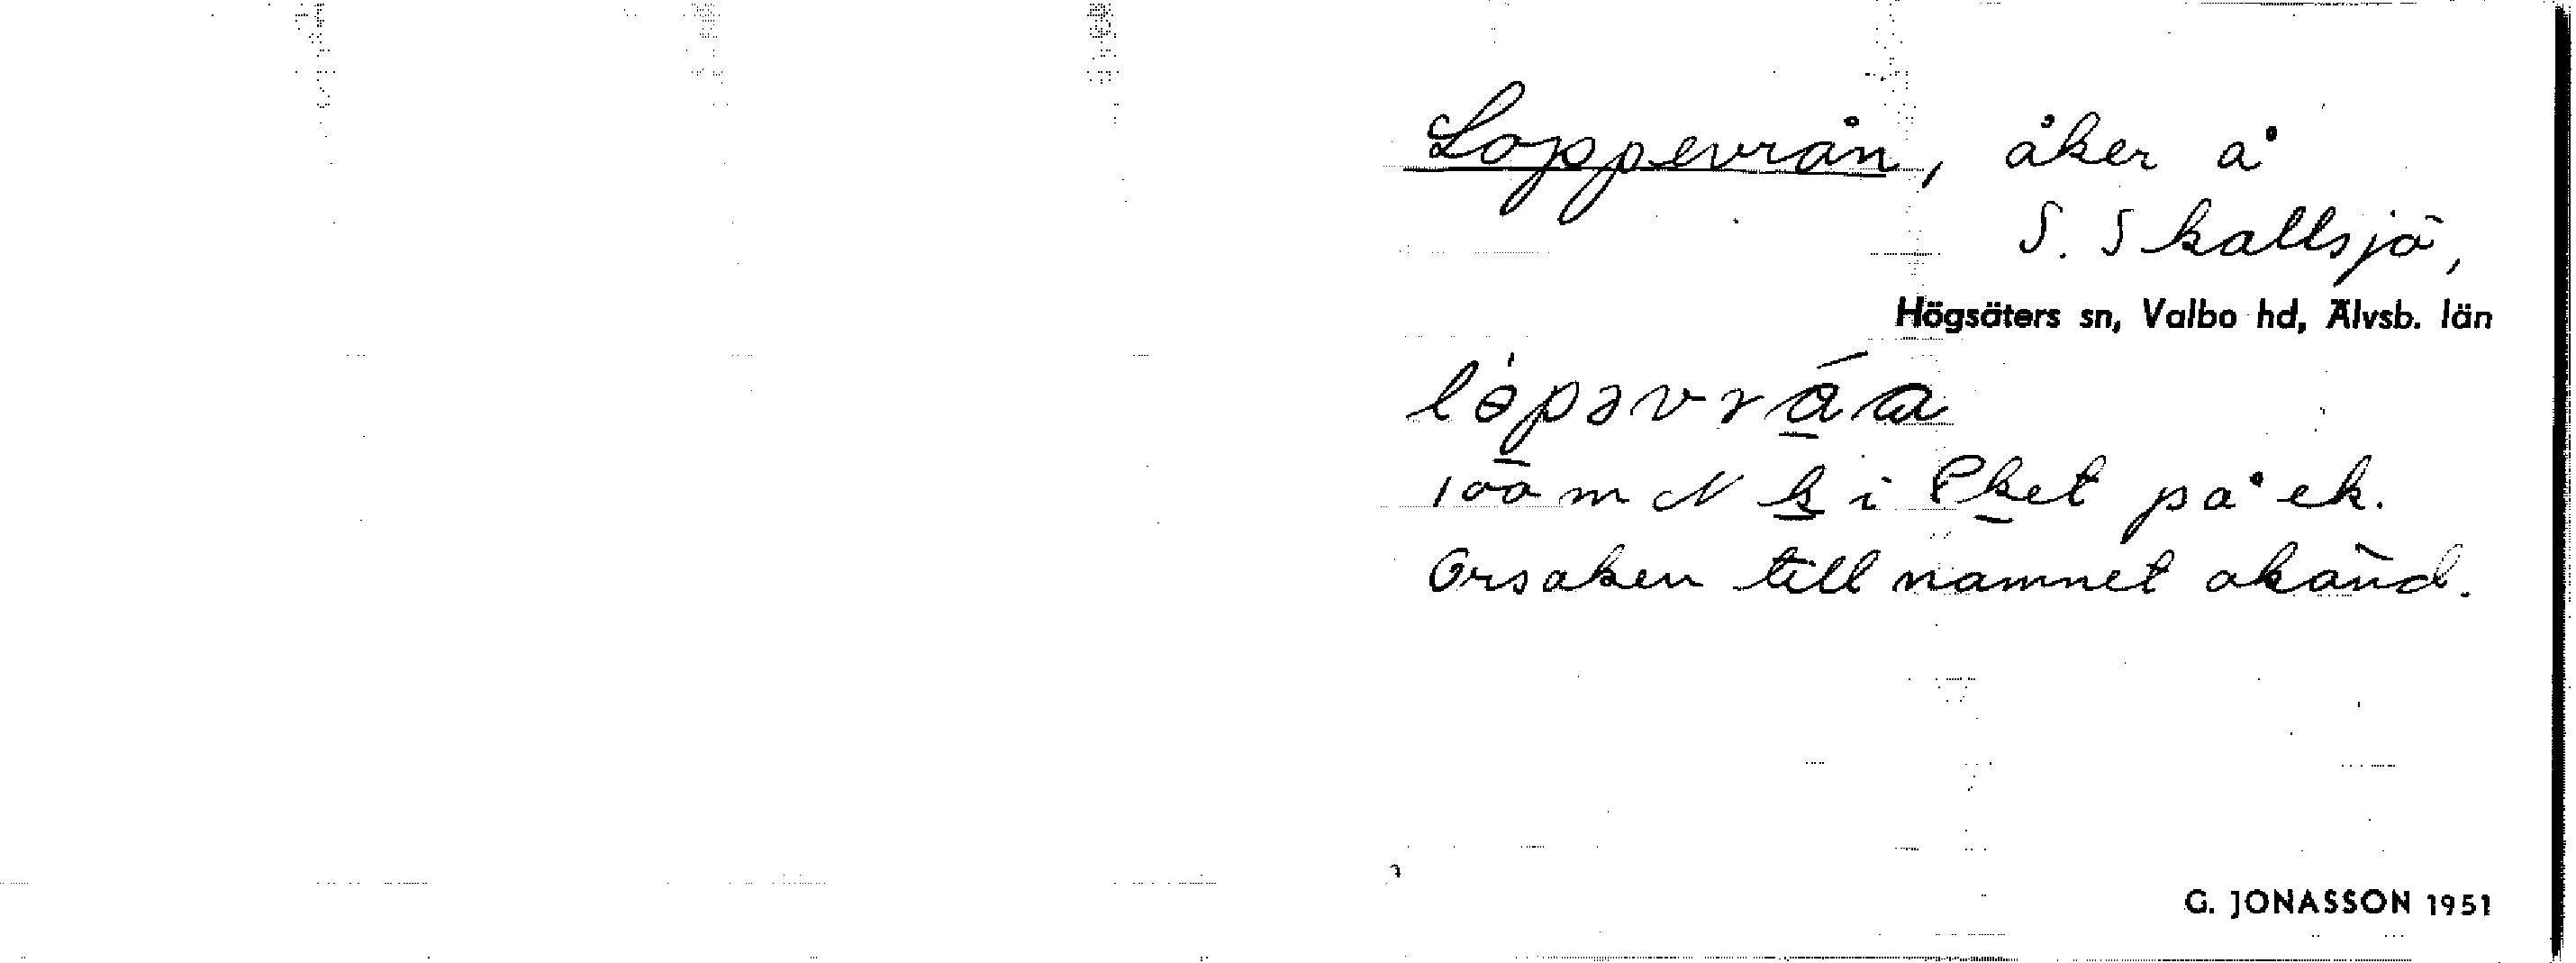 Loppevrån, åker å
S. Skallsjö,
Högsäters sn, Valbo hd, Älvsb. län
100 m N k i Pket på ek.
Orsaken till namnet okänd.
G. JONASSON 1951